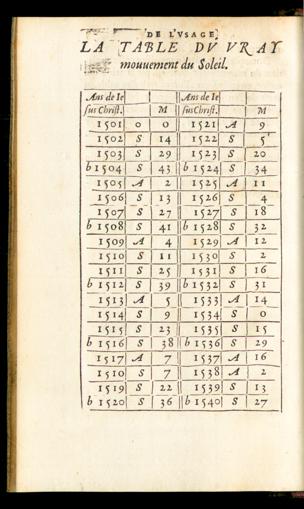 DE L'VSAGE
LA TABLE DV VRAY
mouuement du Soleil.
Ans de Ie | | | Ans de Ie | |
sus Christ. | | M | sus Christ. | | M
1501 | o | 0 | 1521 | A | 9
1502 | S | 14 | 1522 | S | 5
1503 | S | 29 | 1523 | S | 20
b 1504 | S | 43 | b 1524 | S | 34
1505 | A | 2 | 1525 | A | 11
1506 | S | 13 | 1526 | S | 4
1507 | S | 27 | 1527 | S | 18
b 1508 | S | 41 | b 1528 | S | 32
1509 | A | 4 | 1529 | A | 12
1510 | S | 11 | 1530 | S | 2
1511 | S | 25 | 1531 | S | 16
b 1512 | S | 39 | b 1532 | S | 31
1513 | A | 5 | 1533 | A | 14
1514 | S | 9 | 1534 | S | 0
1515 | S | 23 | 1535 | S | 15
b 1516 | S | 38 | b 1536 | S | 29
1517 | A | 7 | 1537 | A | 16
1510 | S | 7 | 1538 | A | 2
1519 | S | 22 | 1539 | S | 13
b 1520 | S | 36 | b 1540 | S | 27